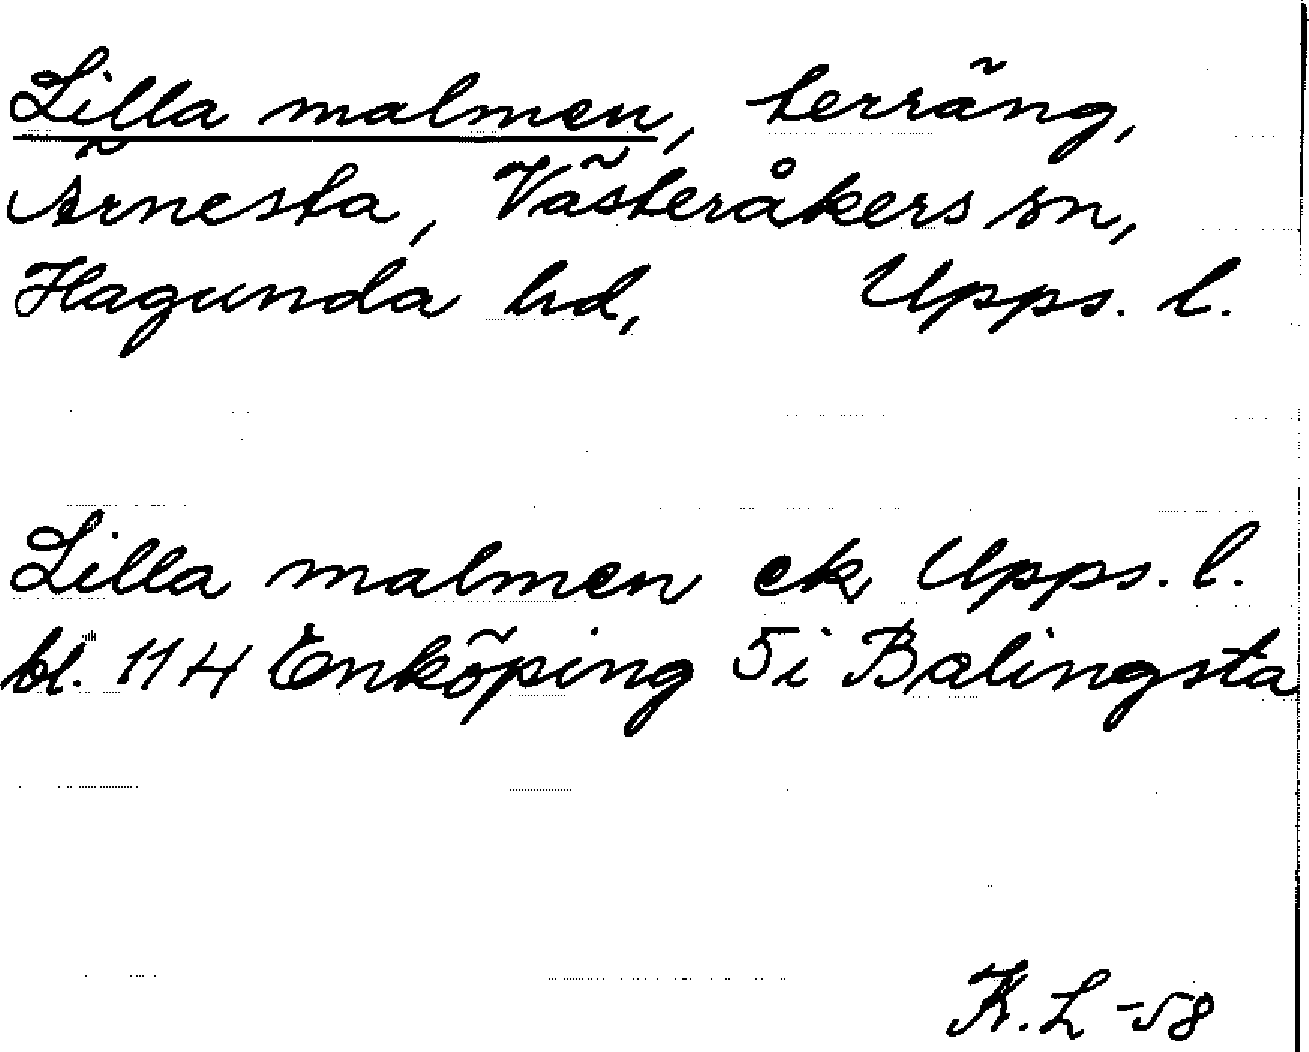 Lilla malmen, terräng,
Ärnesta, Västeråkers sn,
Hagunda hd, Upps. l.
Lilla malmen ek Upps. l.
bl. 11 H Enköping 5 i Balingsta
K. L -58